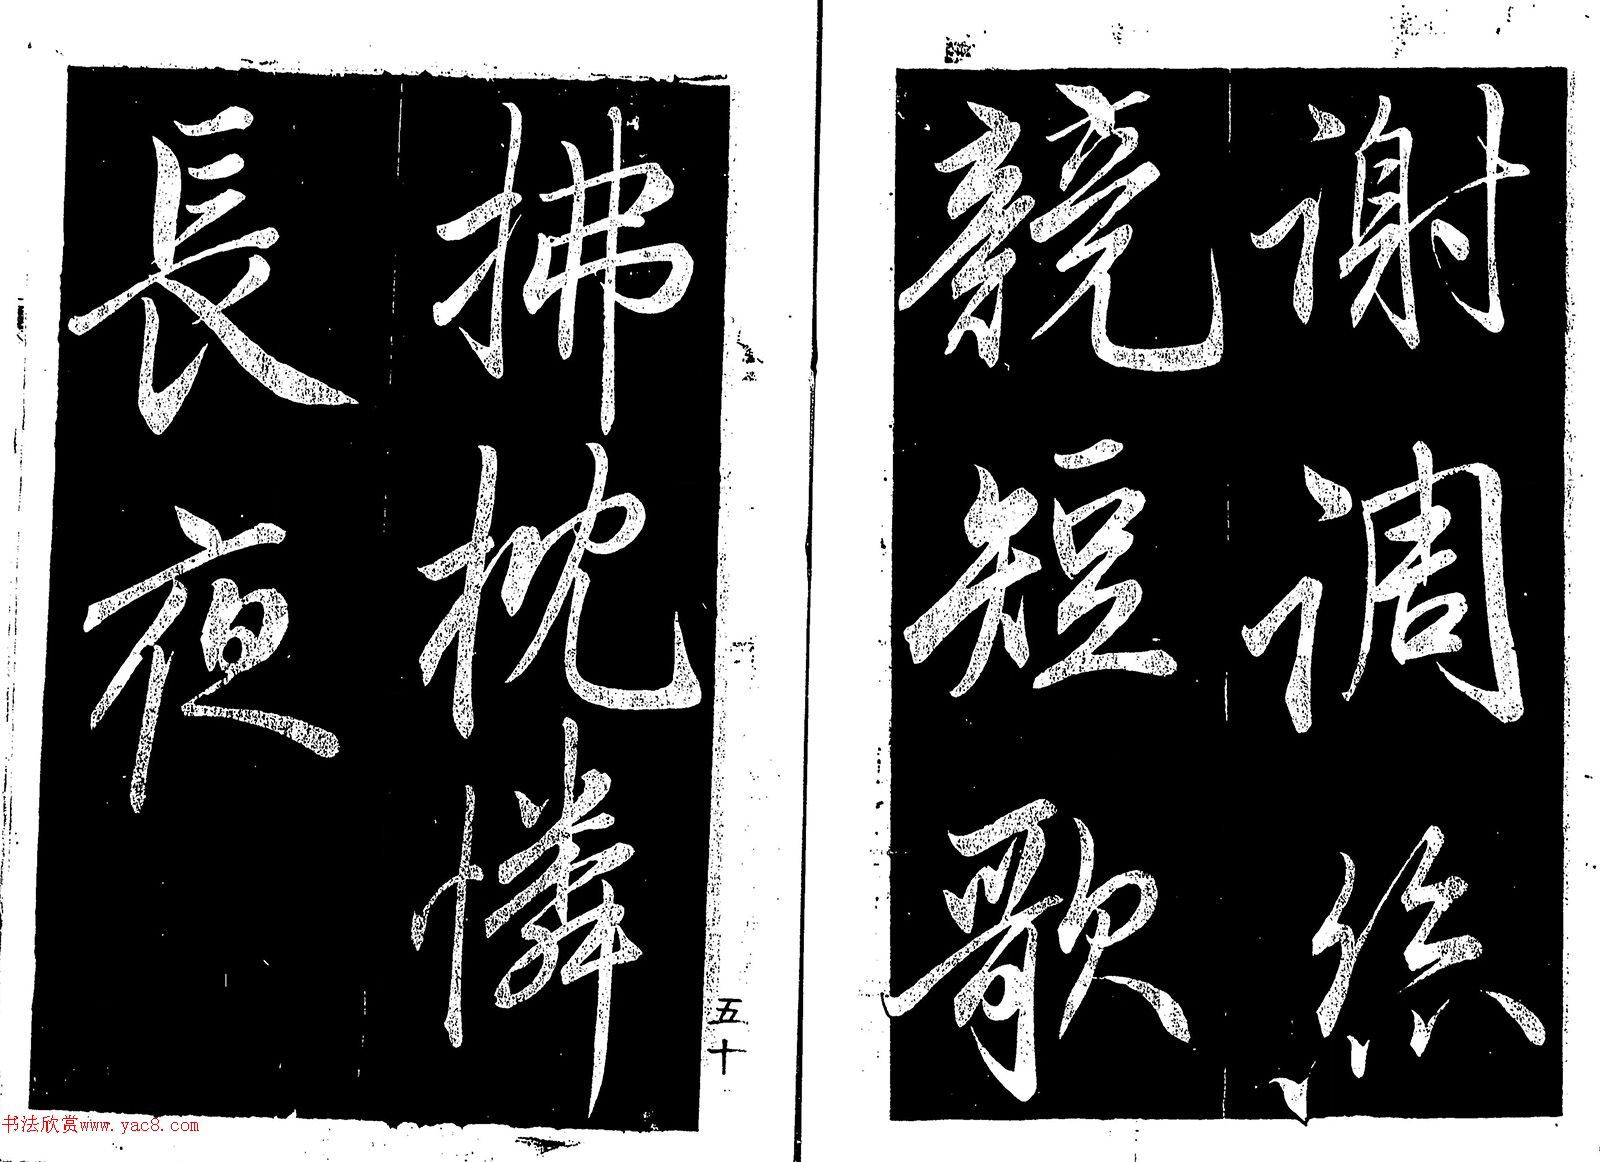 謝調
競短歌
拂枕憐
長夜
五十
书法欣赏www.yac8.com